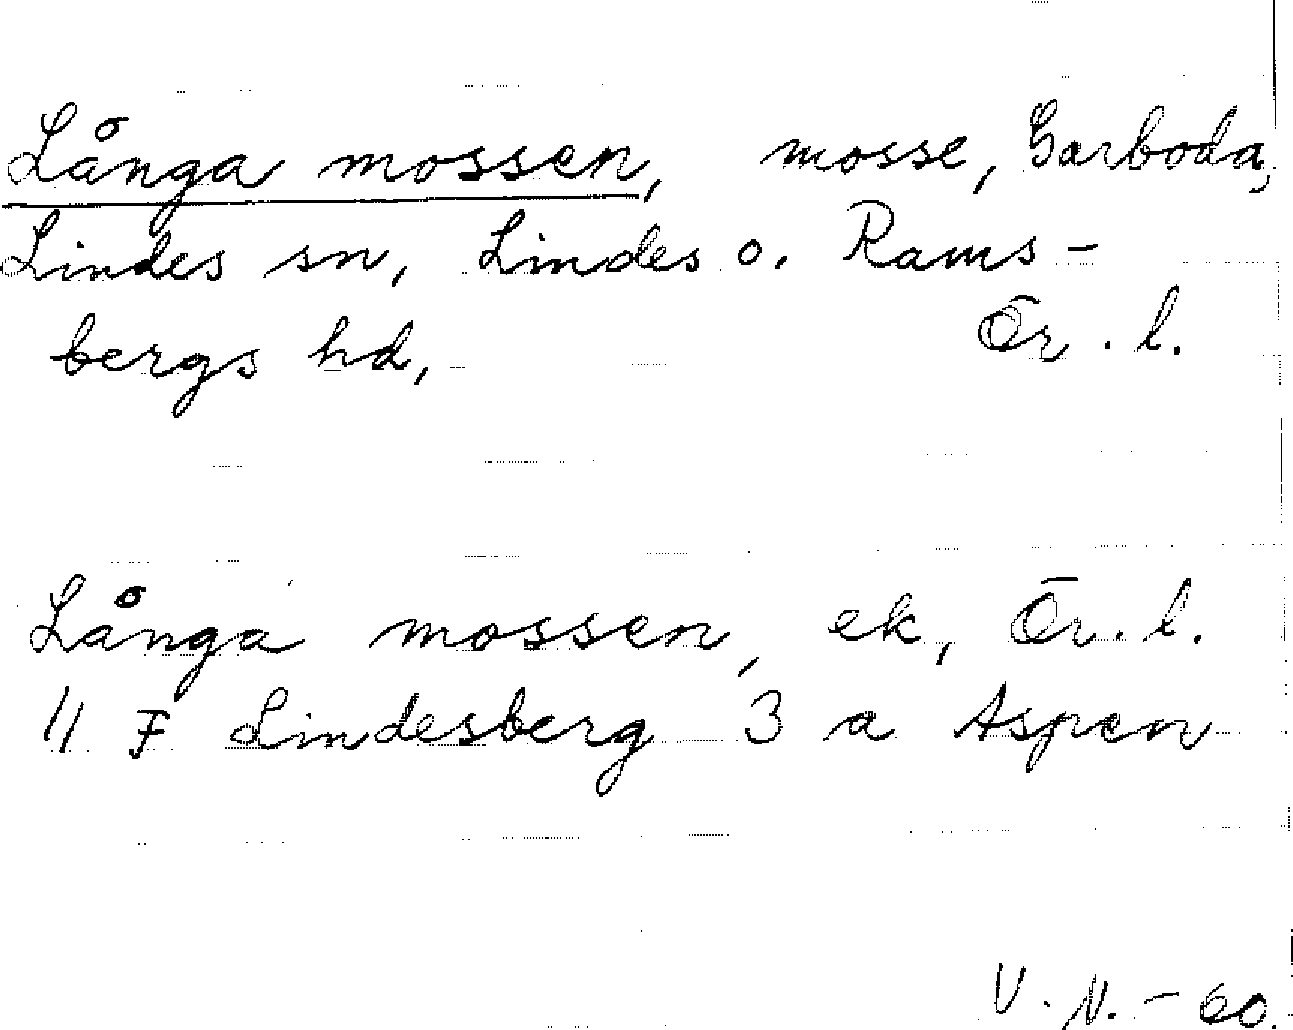 Långa mossen, mosse, Garboda,
Lindes sn, Lindes o. Rams-
bergs hd, Ör. l.
Långa mossen, ek, Ör. l.
11 F Lindesberg 3 a Aspen
V. N. - 60.